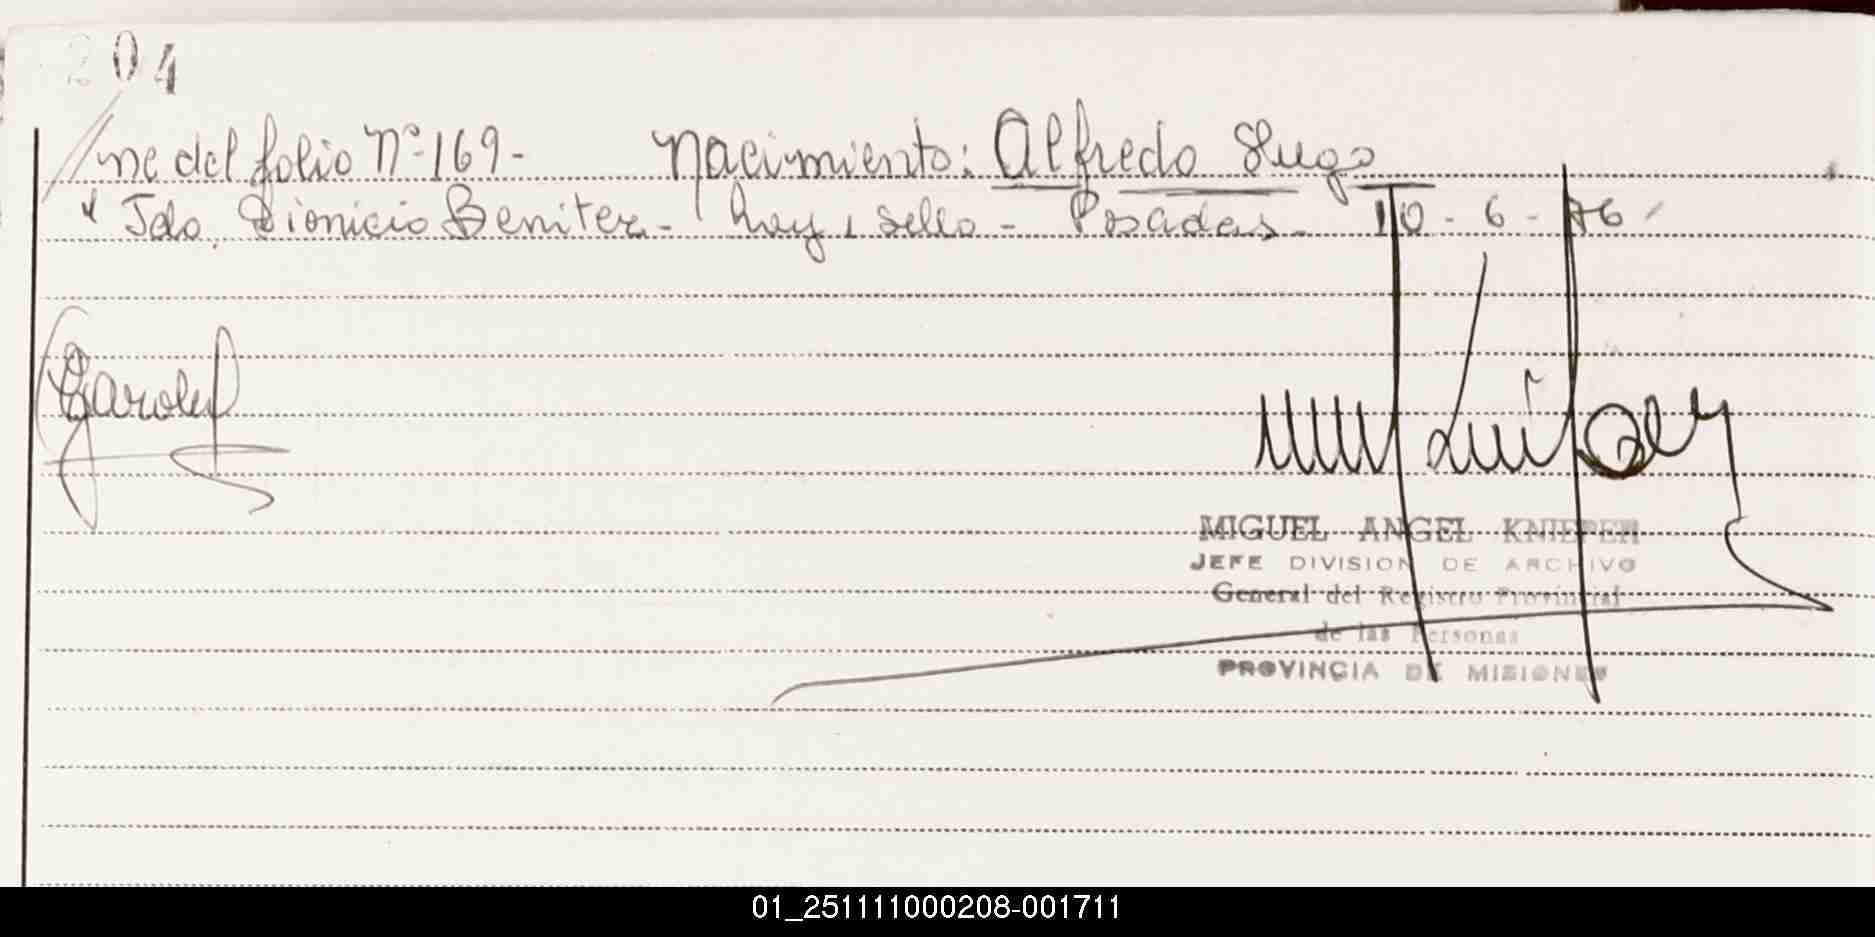 204
/ne del folio Nº 169- Nacimiento: Alfredo Hugo
y Jdo. Dionicio Benitez - hay 1 sello - Posadas - 10 - 6 - 76
MIGUEL ANGEL KNIEPER
JEFE DIVISION DE ARCHIVO
General del Registro Provincial
de las Personas
PROVINCIA DE MISIONES
01_251111000208-001711